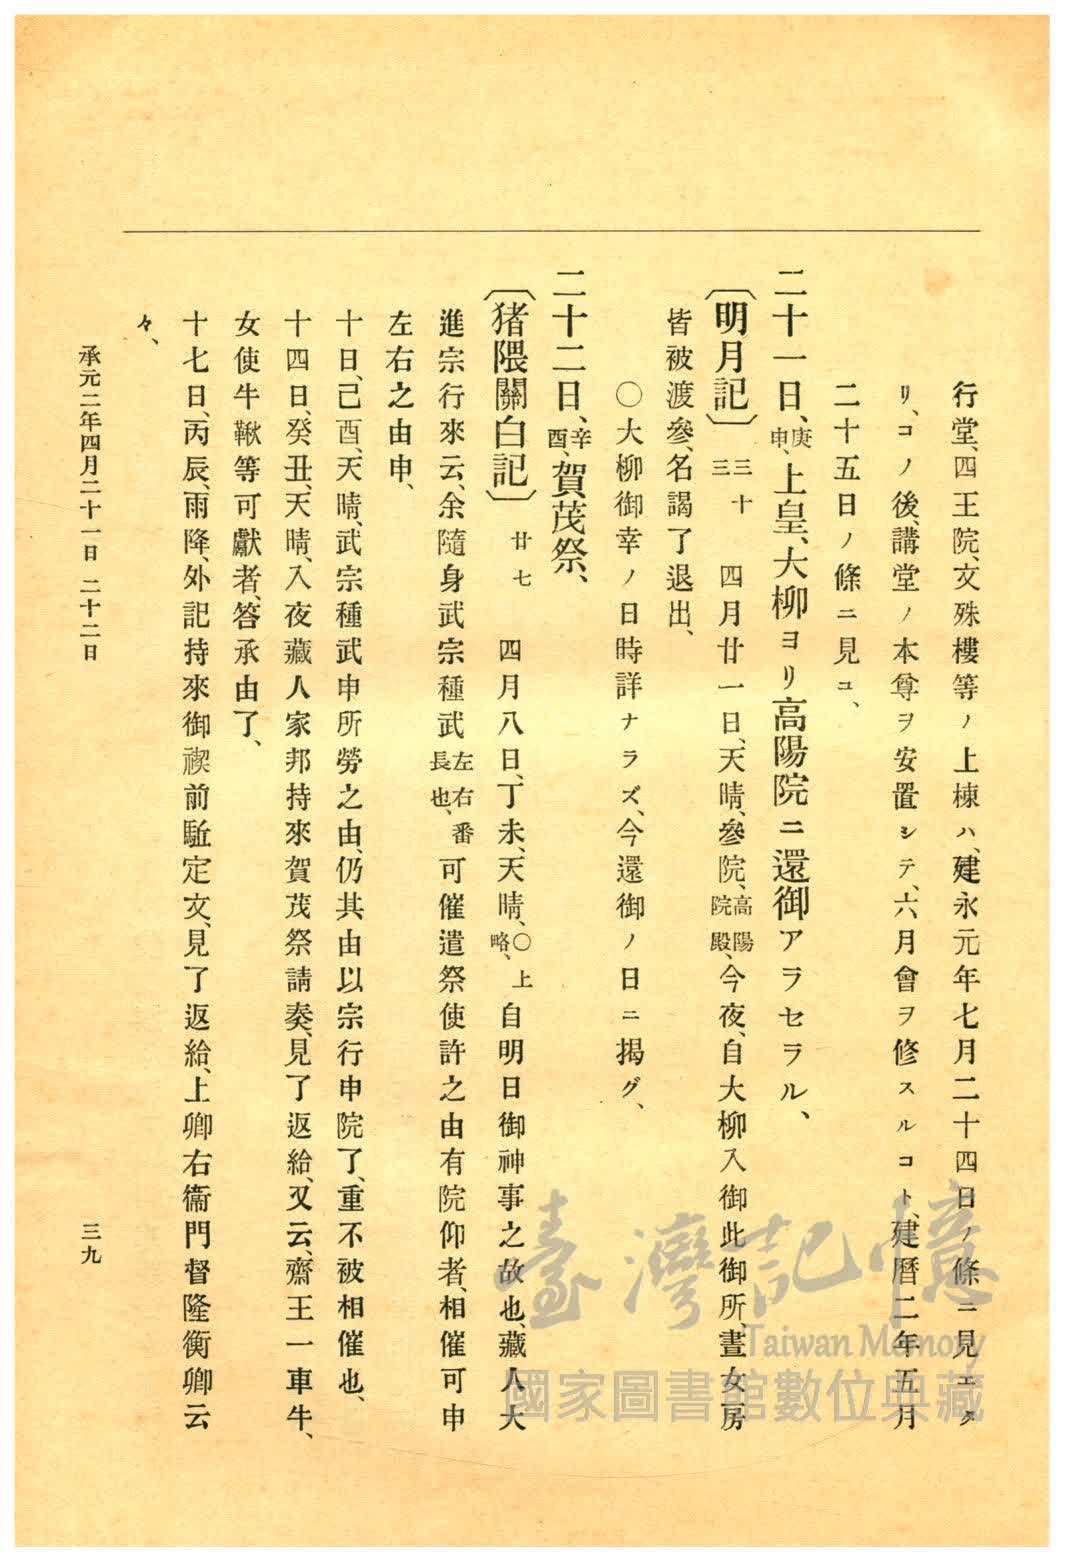 行堂、四王院、文殊樓等ノ上棟ハ、建永元年七月二十四日ノ條ニ見エタ
リ、コノ後、講堂ノ本尊ヲ安置シテ、六月會ヲ修スルコト、建曆二年五月
二十五日ノ條ニ見ユ、
二十一日、庚申、上皇、大柳ヨリ高陽院ニ還御アラセラル、
〔明月記〕三十三 四月廿一日、天晴、參院、高陽院殿、今夜、自大柳入御此御所、晝女房
皆被渡參、名謁了退出、
○大柳御幸ノ日時詳ナラズ、今還御ノ日ニ揭グ、
二十二日、辛酉、賀茂祭、
〔猪隈關白記〕廿七 四月八日、丁未、天晴、○上略、自明日御神事之故也、藏人大
進宗行來云、余隨身武宗種武左右番長也、可催遣祭使許之由有院仰者、相催可申
左右之由申、
十日、己酉、天晴、武宗種武申所勞之由、仍其由以宗行申院了、重不被相催也、
十四日、癸丑、天晴、入夜藏人家邦持來賀茂祭請奏、見了返給、又云、齋王一車牛、
女使牛鞦等可獻者、答承由了、
十七日、丙辰、雨降、外記持來御禊前駈定文、見了返給、上卿右衞門督隆衡卿云
々、
承元二年四月二十一日 二十二日
三九
臺灣記憶
Taiwan Memory
國家圖書館數位典藏